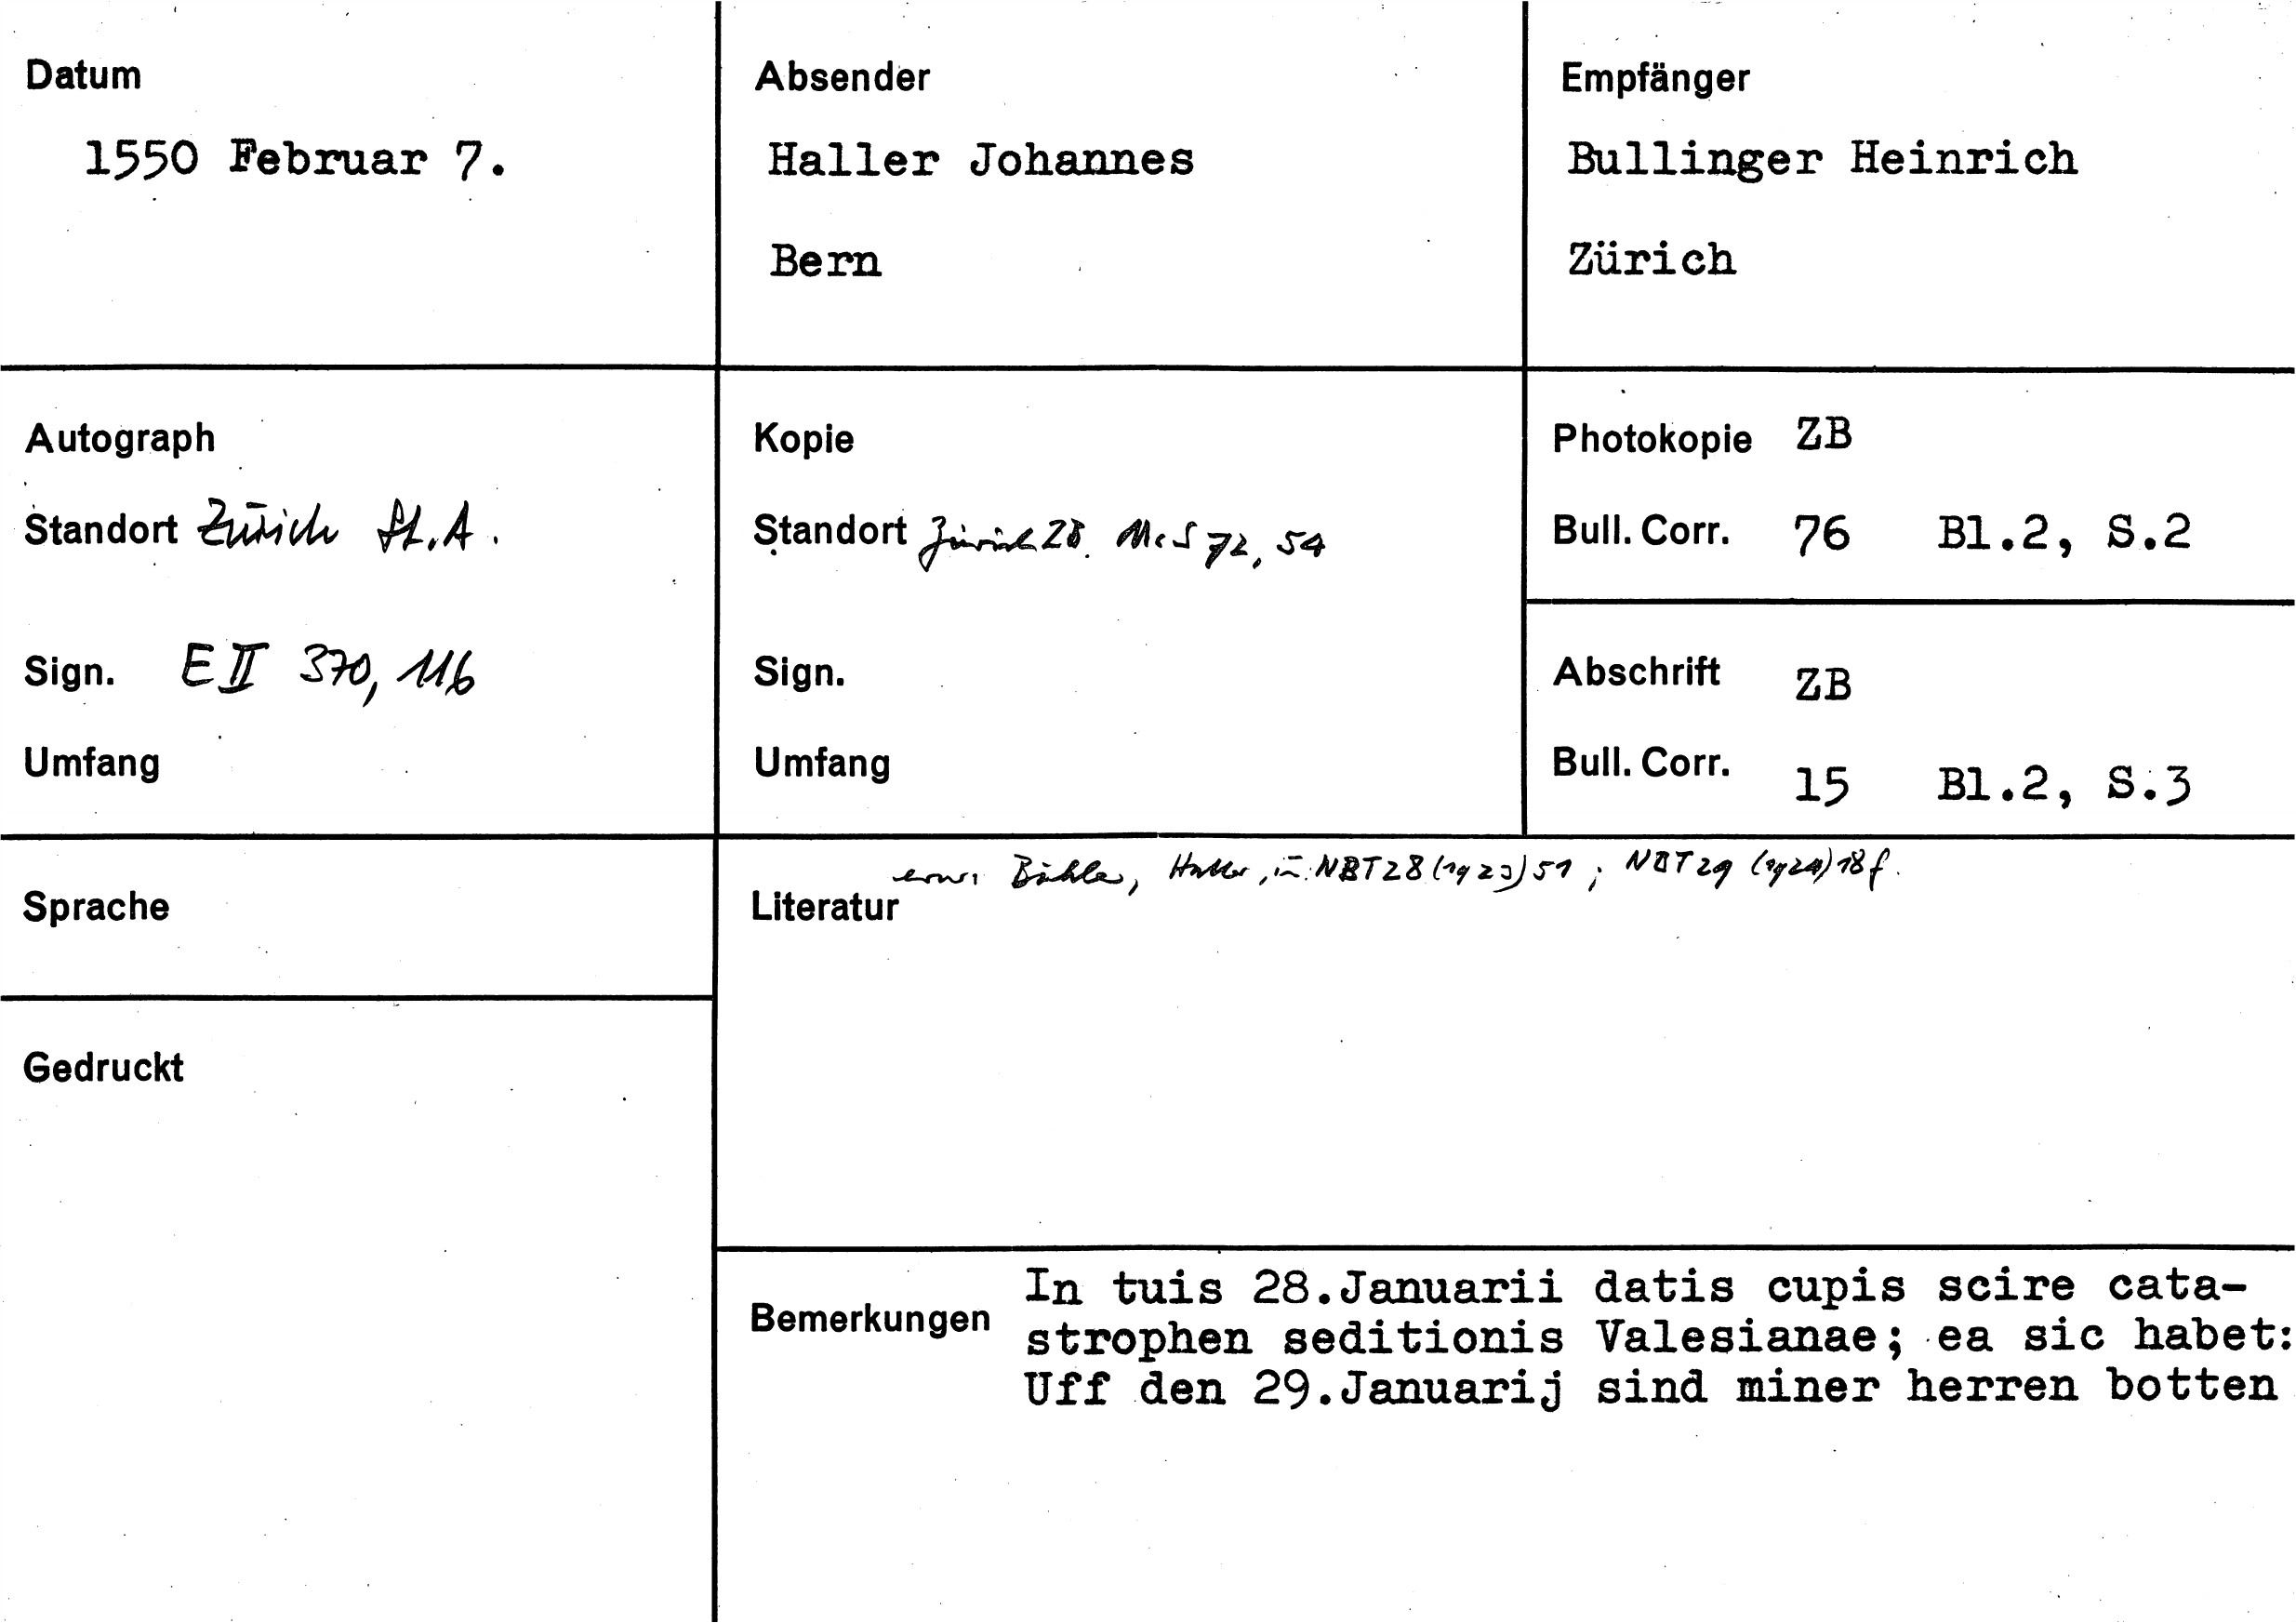 Datum
1550 Februar 7.
Absender
Haller Johannes
Bern
Empfänger
Bullinger Heinrich
Zürich
Autograph
Standort Zürich St.A.
Sign. E II 370, 116
Umfang
Kopie
Standort Zürich ZB. Ms S 72, 54
Sign.
Umfang
Photokopie ZB
Bull. Corr. 76 Bl.2, S.2
Abschrift ZB
Bull. Corr. 15 Bl.2, S.3
Sprache
Gedruckt
Literatur
Bähler, Haller, in: NBT 28 (1923) 51; NBT 29 (1924) 18 f.
Bemerkungen
In tuis 28.Januarii datis cupis scire cata-
strophen seditionis Valesianae; ea sic habet:
Uff den 29.Januarij sind miner herren botten